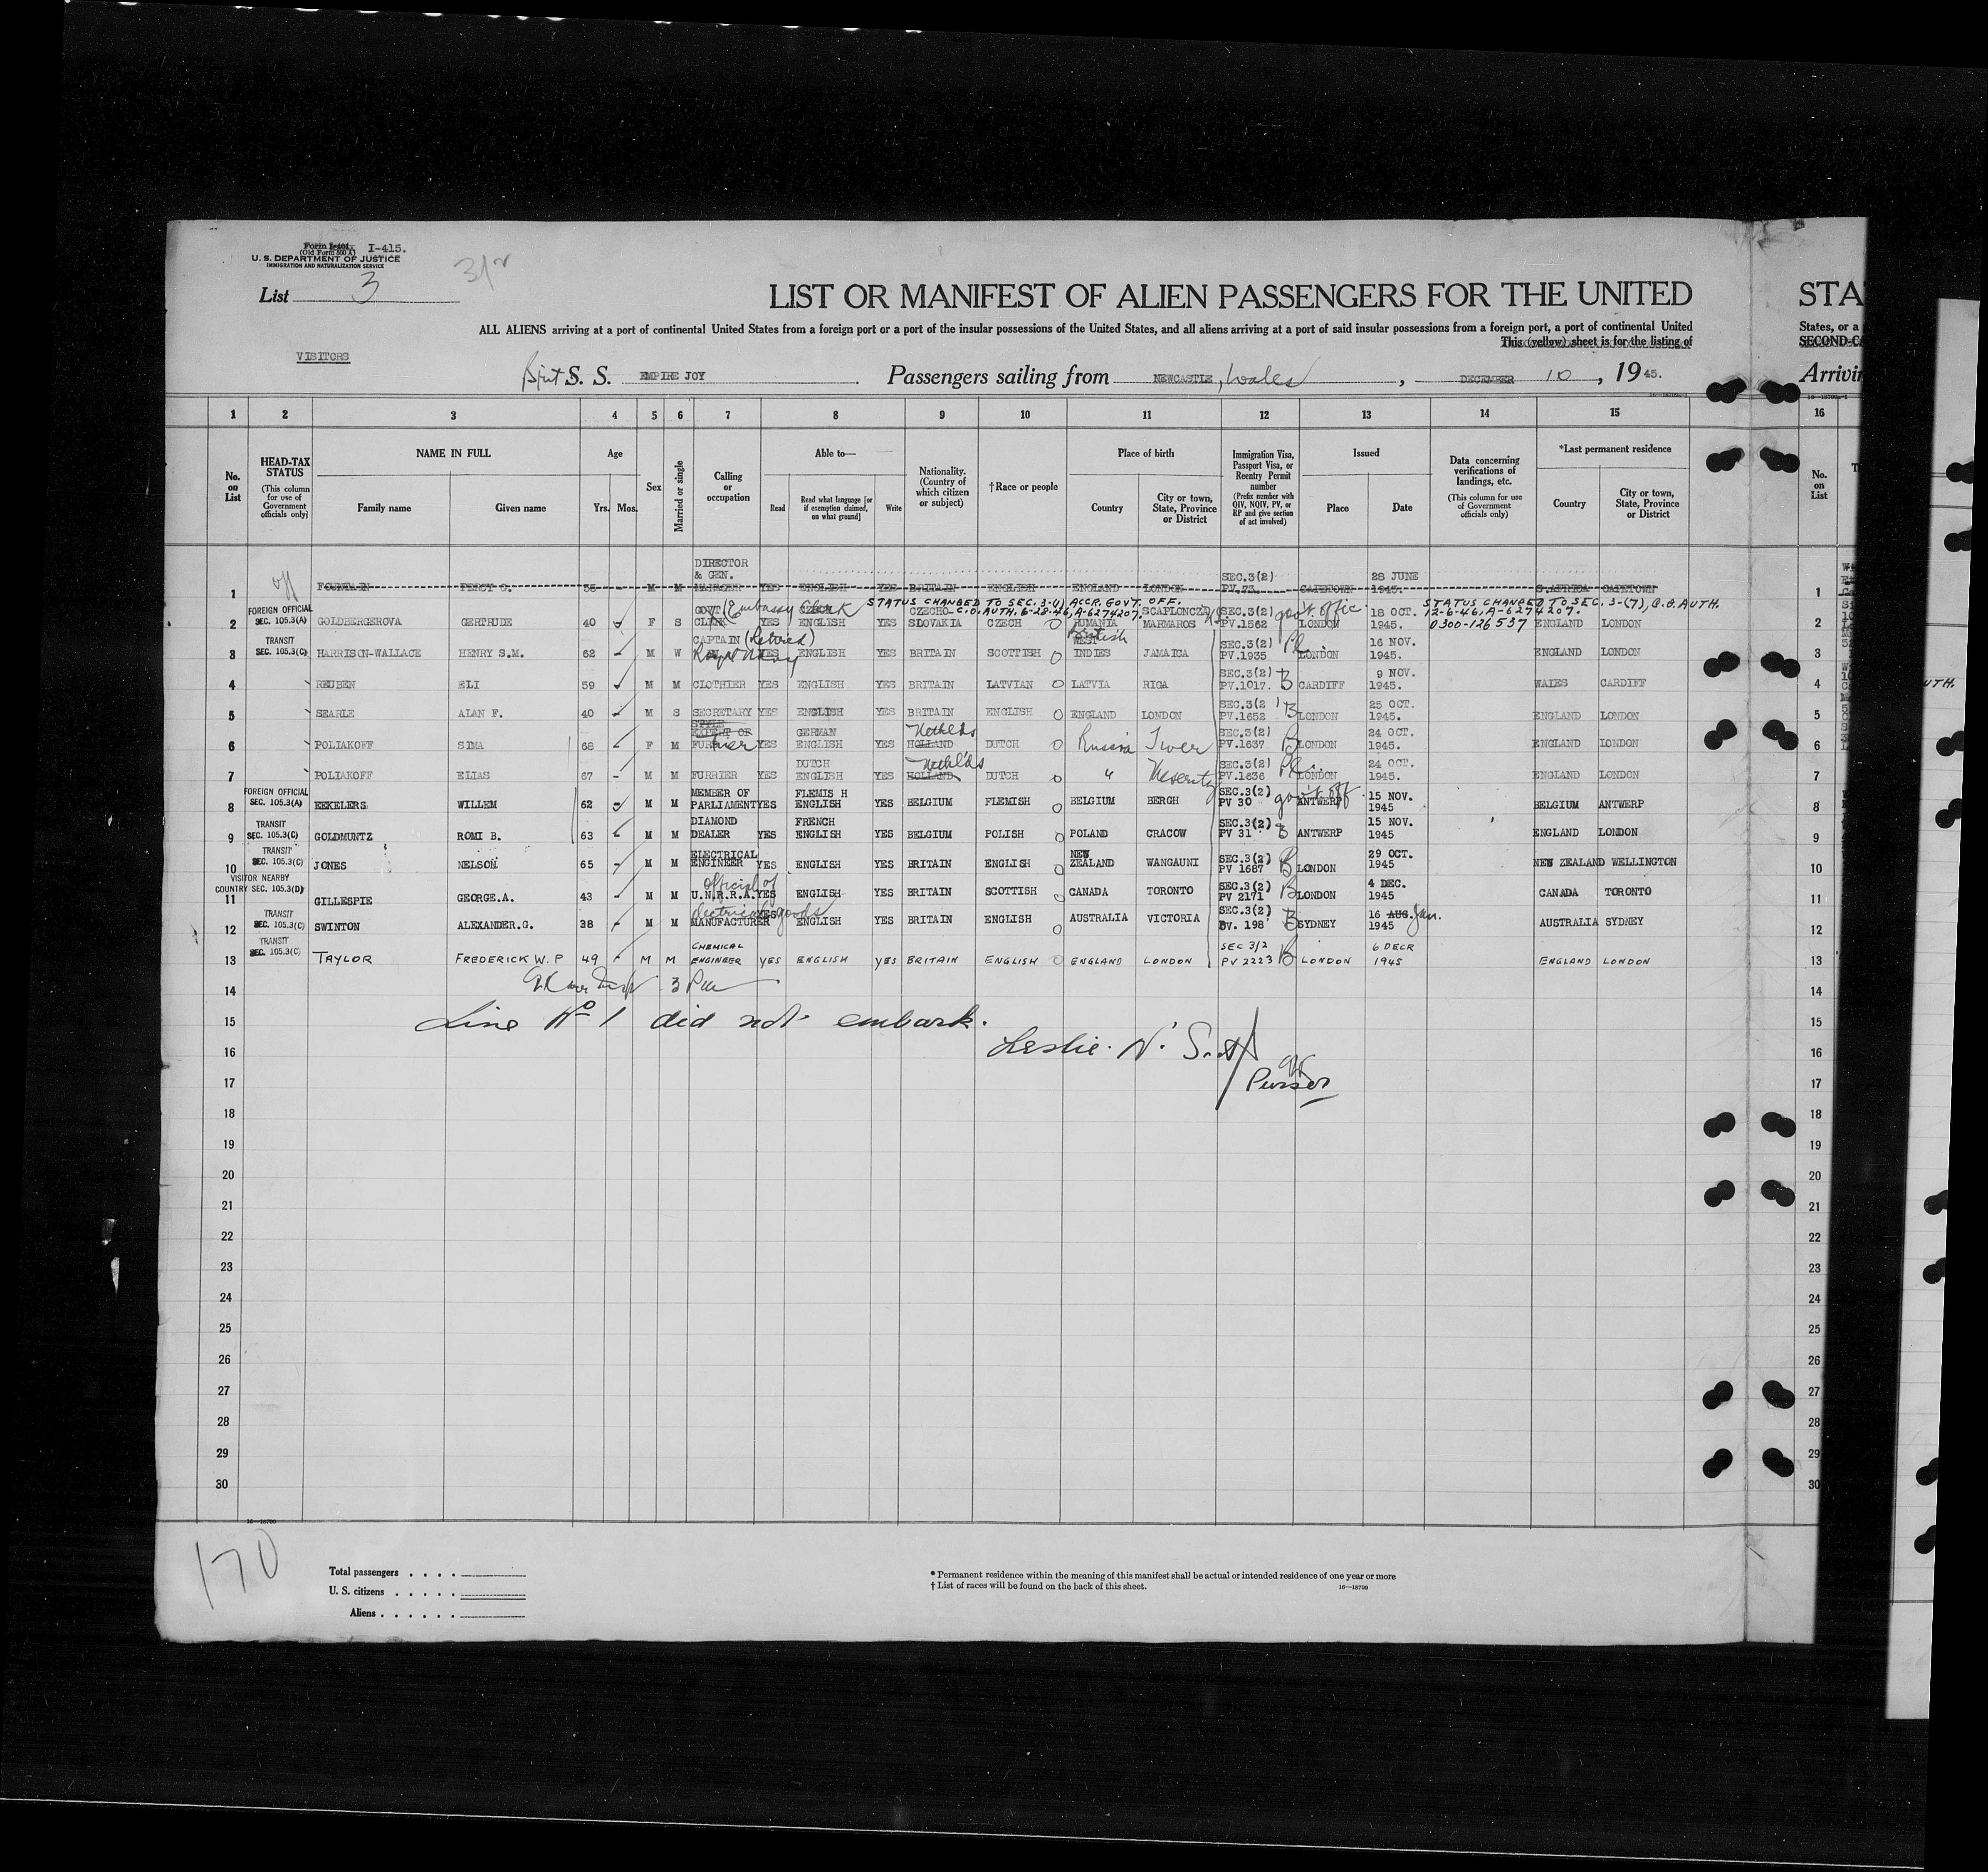 Form I-404 I-415.
(Old Form 500 A)
U. S. DEPARTMENT OF JUSTICE
IMMIGRATION AND NATURALIZATION SERVICE
List 3
LIST OR MANIFEST OF ALIEN PASSENGERS FOR THE UNITED
STA
ALL ALIENS arriving at a port of continental United States from a foreign port or a port of the insular possessions of the United States, and all aliens arriving at a port of said insular possessions from a foreign port, a port of continental United
States, or a
This (yellow) sheet is for the listing of
SECOND-CA
VISITORS
S. S. EMPIRE JOY. Passengers sailing from NEWCASTLE, Wales, DECEMBER 10, 1945.
Arrivin
1 2 3 4 5 6 7 8 9 10 11 12 13 14 15 16
No. on List
HEAD-TAX STATUS (This column for use of Government officials only)
NAME IN FULL Family name Given name
Age Yrs. Mos.
Sex
Married or single
Calling or occupation
Able to— Read Read what language [or if exemption claimed, on what ground] Write
Nationality. (Country of which citizen or subject)
†Race or people
Place of birth Country City or town, State, Province or District
Immigration Visa, Passport Visa, or Reentry Permit number (Prefix number with QIV, NQIV, PV, or RP and give section of act involved)
Issued Place Date
Data concerning verifications of landings, etc. (This column for use of Government officials only)
*Last permanent residence Country City or town, State, Province or District
No. on List
1 off PERCY 56 - M M DIRECTOR & GEN. MANAGER YES ENGLISH YES BRITAIN ENGLISH ENGLAND LONDON SEC.3(2) PV.73 CAPETOWN 28 JUNE 1945. S.AFRICA CAPETOWN 1
STATUS CHANGED TO SEC. 3-(1) ACCR. GOVT. OFF. C.O. AUTH. 6-28-46, A-6274207.
STATUS CHANGED TO SEC. 3-(7), C.O. AUTH. 12-6-46, A-6274207. 0300-126537
2 FOREIGN OFFICIAL SEC. 105.3(A) GOLDBERGEROVA GERTRUDE 40 F S GOVT. CLERK (Embassy Clerk YES CZECH ENGLISH YES CZECHO-SLOVAKIA CZECH RUMANIA SCAPLONCZA MARMAROS SEC.3(2) PV.1562 gov't. offic. LONDON 18 OCT. 1945. ENGLAND LONDON 2
3 TRANSIT SEC. 105.3(C) HARRISON-WALLACE HENRY S.M. 62 M W CAPTAIN (Retired) Royal Navy YES ENGLISH YES BRITAIN SCOTTISH British WEST INDIES JAMAICA SEC.3(2) PV.1935 Pl. LONDON 16 NOV. 1945. ENGLAND LONDON 3
4 REUBEN ELI 59 M M CLOTHIER YES ENGLISH YES BRITAIN LATVIAN LATVIA RIGA SEC.3(2) PV.1017. B CARDIFF 9 NOV. 1945. WALES CARDIFF 4
5 SEARLE ALAN F. 40 M S SECRETARY YES ENGLISH YES BRITAIN ENGLISH ENGLAND LONDON SEC.3(2 PV.1652 B LONDON 25 OCT. 1945. ENGLAND LONDON 5
6 POLIAKOFF SIMA 68 F M STYLE EXPERT OR FURRIER YES GERMAN ENGLISH YES HOLLAND Nethlds DUTCH Russia Twer SEC.3(2) PV.1637 B LONDON 24 OCT. 1945. ENGLAND LONDON 6
7 POLIAKOFF ELIAS 67 - M M FURRIER YES DUTCH ENGLISH YES HOLLAND Nethlds DUTCH " SEC.3(2) PV.1636 Pl. LONDON 24 OCT. 1945. ENGLAND LONDON 7
8 FOREIGN OFFICIAL SEC. 105.3(A) EEKELERS WILLEM 62 M M MEMBER OF PARLIAMENT YES FLEMIS H ENGLISH YES BELGIUM FLEMISH BELGIUM BERGH SEC.3(2) PV 30 gov't. off ANTWERP 15 NOV. 1945 BELGIUM ANTWERP 8
9 TRANSIT SEC. 105.3(C) GOLDMUNTZ ROMI B. 63 M M DIAMOND DEALER YES FRENCH ENGLISH YES BELGIUM POLISH POLAND CRACOW SEC.3(2) PV 31 B ANTWERP 15 NOV. 1945 ENGLAND LONDON 9
10 TRANSIT SEC. 105.3(C) JONES NELSON 65 M M ELECTRICAL ENGINEER YES ENGLISH YES BRITAIN ENGLISH NEW ZEALAND WANGAUNI SEC.3(2) PV 1687 B LONDON 29 OCT. 1945 NEW ZEALAND WELLINGTON 10
11 VISITOR NEARBY COUNTRY SEC. 105.3(D) GILLESPIE GEORGE.A. 43 - M M official of U.N.R.R.A. YES ENGLISH YES BRITAIN SCOTTISH CANADA TORONTO SEC.3(2) PV 2171 B LONDON 4 DEC. 1945 CANADA TORONTO 11
12 TRANSIT SEC. 105.3(C) SWINTON ALEXANDER.G. 38 M M electrical goods MANUFACTURER YES ENGLISH YES BRITAIN ENGLISH AUSTRALIA VICTORIA SEC.3(2) PV. 198 B SYDNEY 16 AUG. Jan. 1945 AUSTRALIA SYDNEY 12
13 TRANSIT SEC. 105.3(C) TAYLOR FREDERICK W. P 49 M M CHEMICAL ENGINEER YES ENGLISH YES BRITAIN ENGLISH ENGLAND LONDON SEC 3/2 PV 2223 B LONDON 6 DECR 1945 ENGLAND LONDON 13
14
15 Line No 1 did not embark. 15
16 Leslie. N. 16
17 Purser 17
18 18
19 19
20 20
21 21
22 22
23 23
24 24
25 25
26 26
27 27
28 28
29 29
30 30
16—18709
170
Total passengers . . . .
U. S. citizens . . . . . .
Aliens . . . . . .
* Permanent residence within the meaning of this manifest shall be actual or intended residence of one year or more
† List of races will be found on the back of this sheet.
16—18709